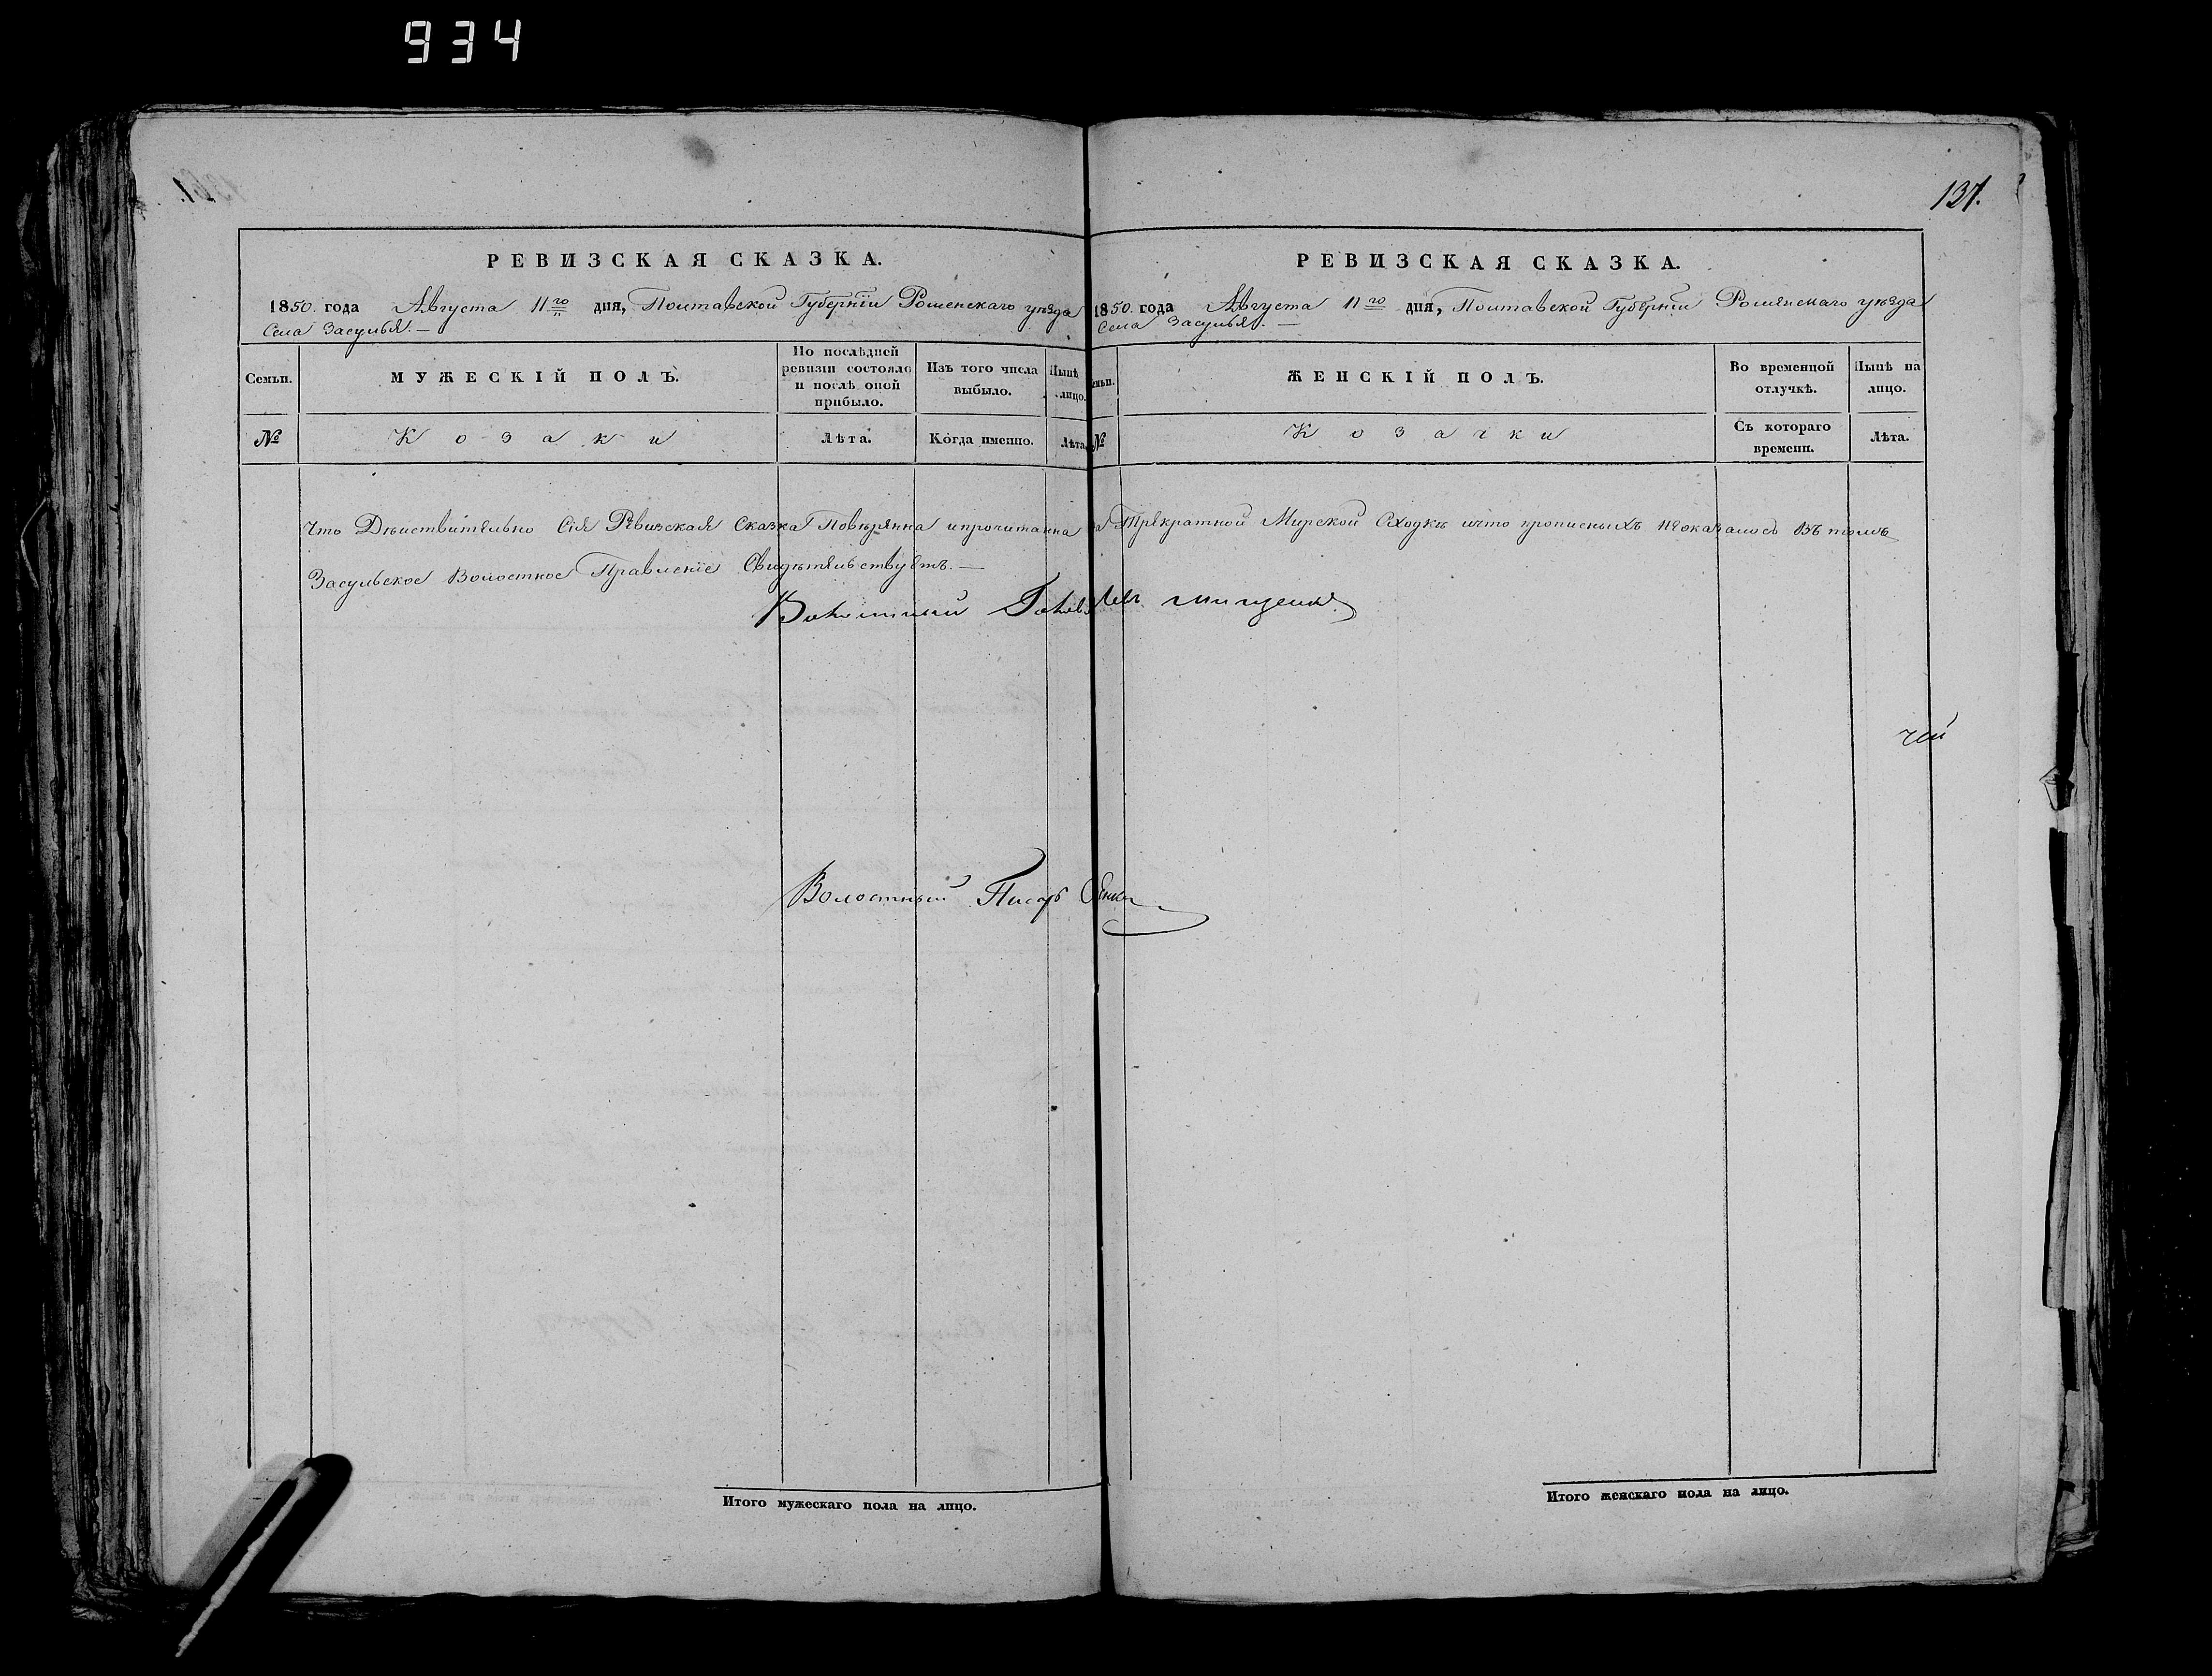 934
137.
РЕВИЗСКАЯ СКАЗКА.
1850. года Августа 11го дня, Полтавской Губернїи Роменскаго уѣзда
Села Засулья. —
Семьи.
МУЖЕСКІЙ ПОЛЪ.
По послѣдней ревизіи состояло и послѣ оной прибыло.
Изъ того числа выбыло.
Нынѣ лицо.
№
Козаки
Лѣта.
Когда именно.
Лѣта.
РЕВИЗСКАЯ СКАЗКА.
1850. года Августа 11го дня, Полтавской Губернїи Роменскаго уѣзда
Села Засулья. —
ЖЕНСКІЙ ПОЛЪ.
Во временной отлучкѣ.
Нынѣ на лицо.
№
Козачки
Съ котораго времени.
Лѣта.
Что Дѣиствительно Сія Ревизская Сказка Повѣренна и прочитанна на Трекратной Мирской Сходкѣ и что прописныхъ неоказалось въ томъ
Засульское Волостное Правленїе Свидѣтельствуетъ. —
Волостный Голова
Волостный Писарь
Итого мужескаго пола на лицо.
Итого женскаго пола на лицо.